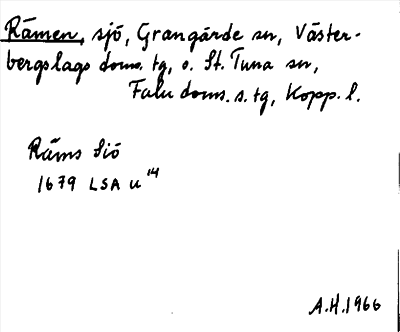 Rämen, sjö, Grangärde sn, Väster-
bergslags doms. tg, o. St. Tuna sn,
Falu doms. s. tg, Kopp. l.
Räms Siö
1679 LSA U 14
A.H. 1966